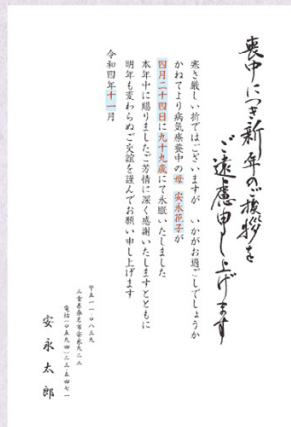 喪中につき新年のご挨拶を
ご遠慮申し上げます
寒き厳しい折ではございますが いかがお過ごしでしょうか
かねてより病気療養中の母 安永花子が
四月二十四日に九十九歳にて永眠いたしました
本年中に賜りましたご芳情に深く感謝いたしますとともに
明年も変わらぬご交誼を謹んでお願い申し上げます
令和四年十一月
〒五一一-〇八三九
三重県桑名市安永九二二
電話(〇五九四)二三-五四七一
安永太郎